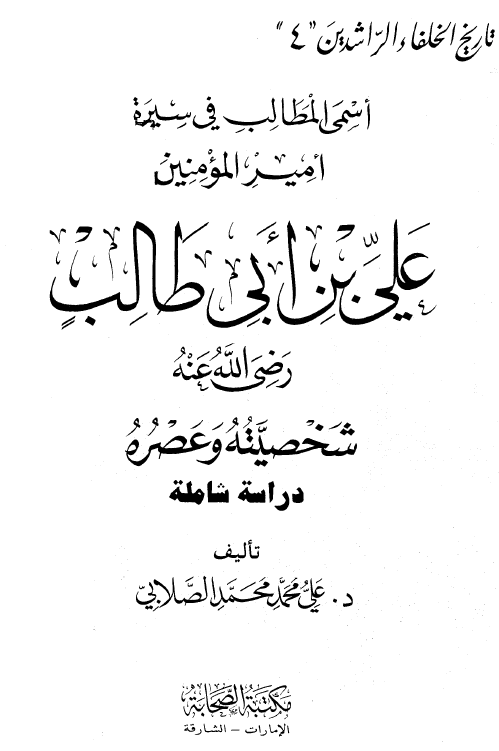 تاريخ الخلفاء الراشدين "٤"
أسمى المطالب في سيرة
أمير المؤمنين
عَلَيِّ بْنِ أَبِي طَالِبٍ
رَضِيَ اللَّهُ عَنْهُ
شَخْصِيَّتُهُ وَعَصْرُهُ
دراسة شاملة
تأليف
د. عَلِيُّ مُحَمَّد مُحَمَّد الصَّلَّابِيّ
مكتبة الصحابة
الإمارات - الشارقة